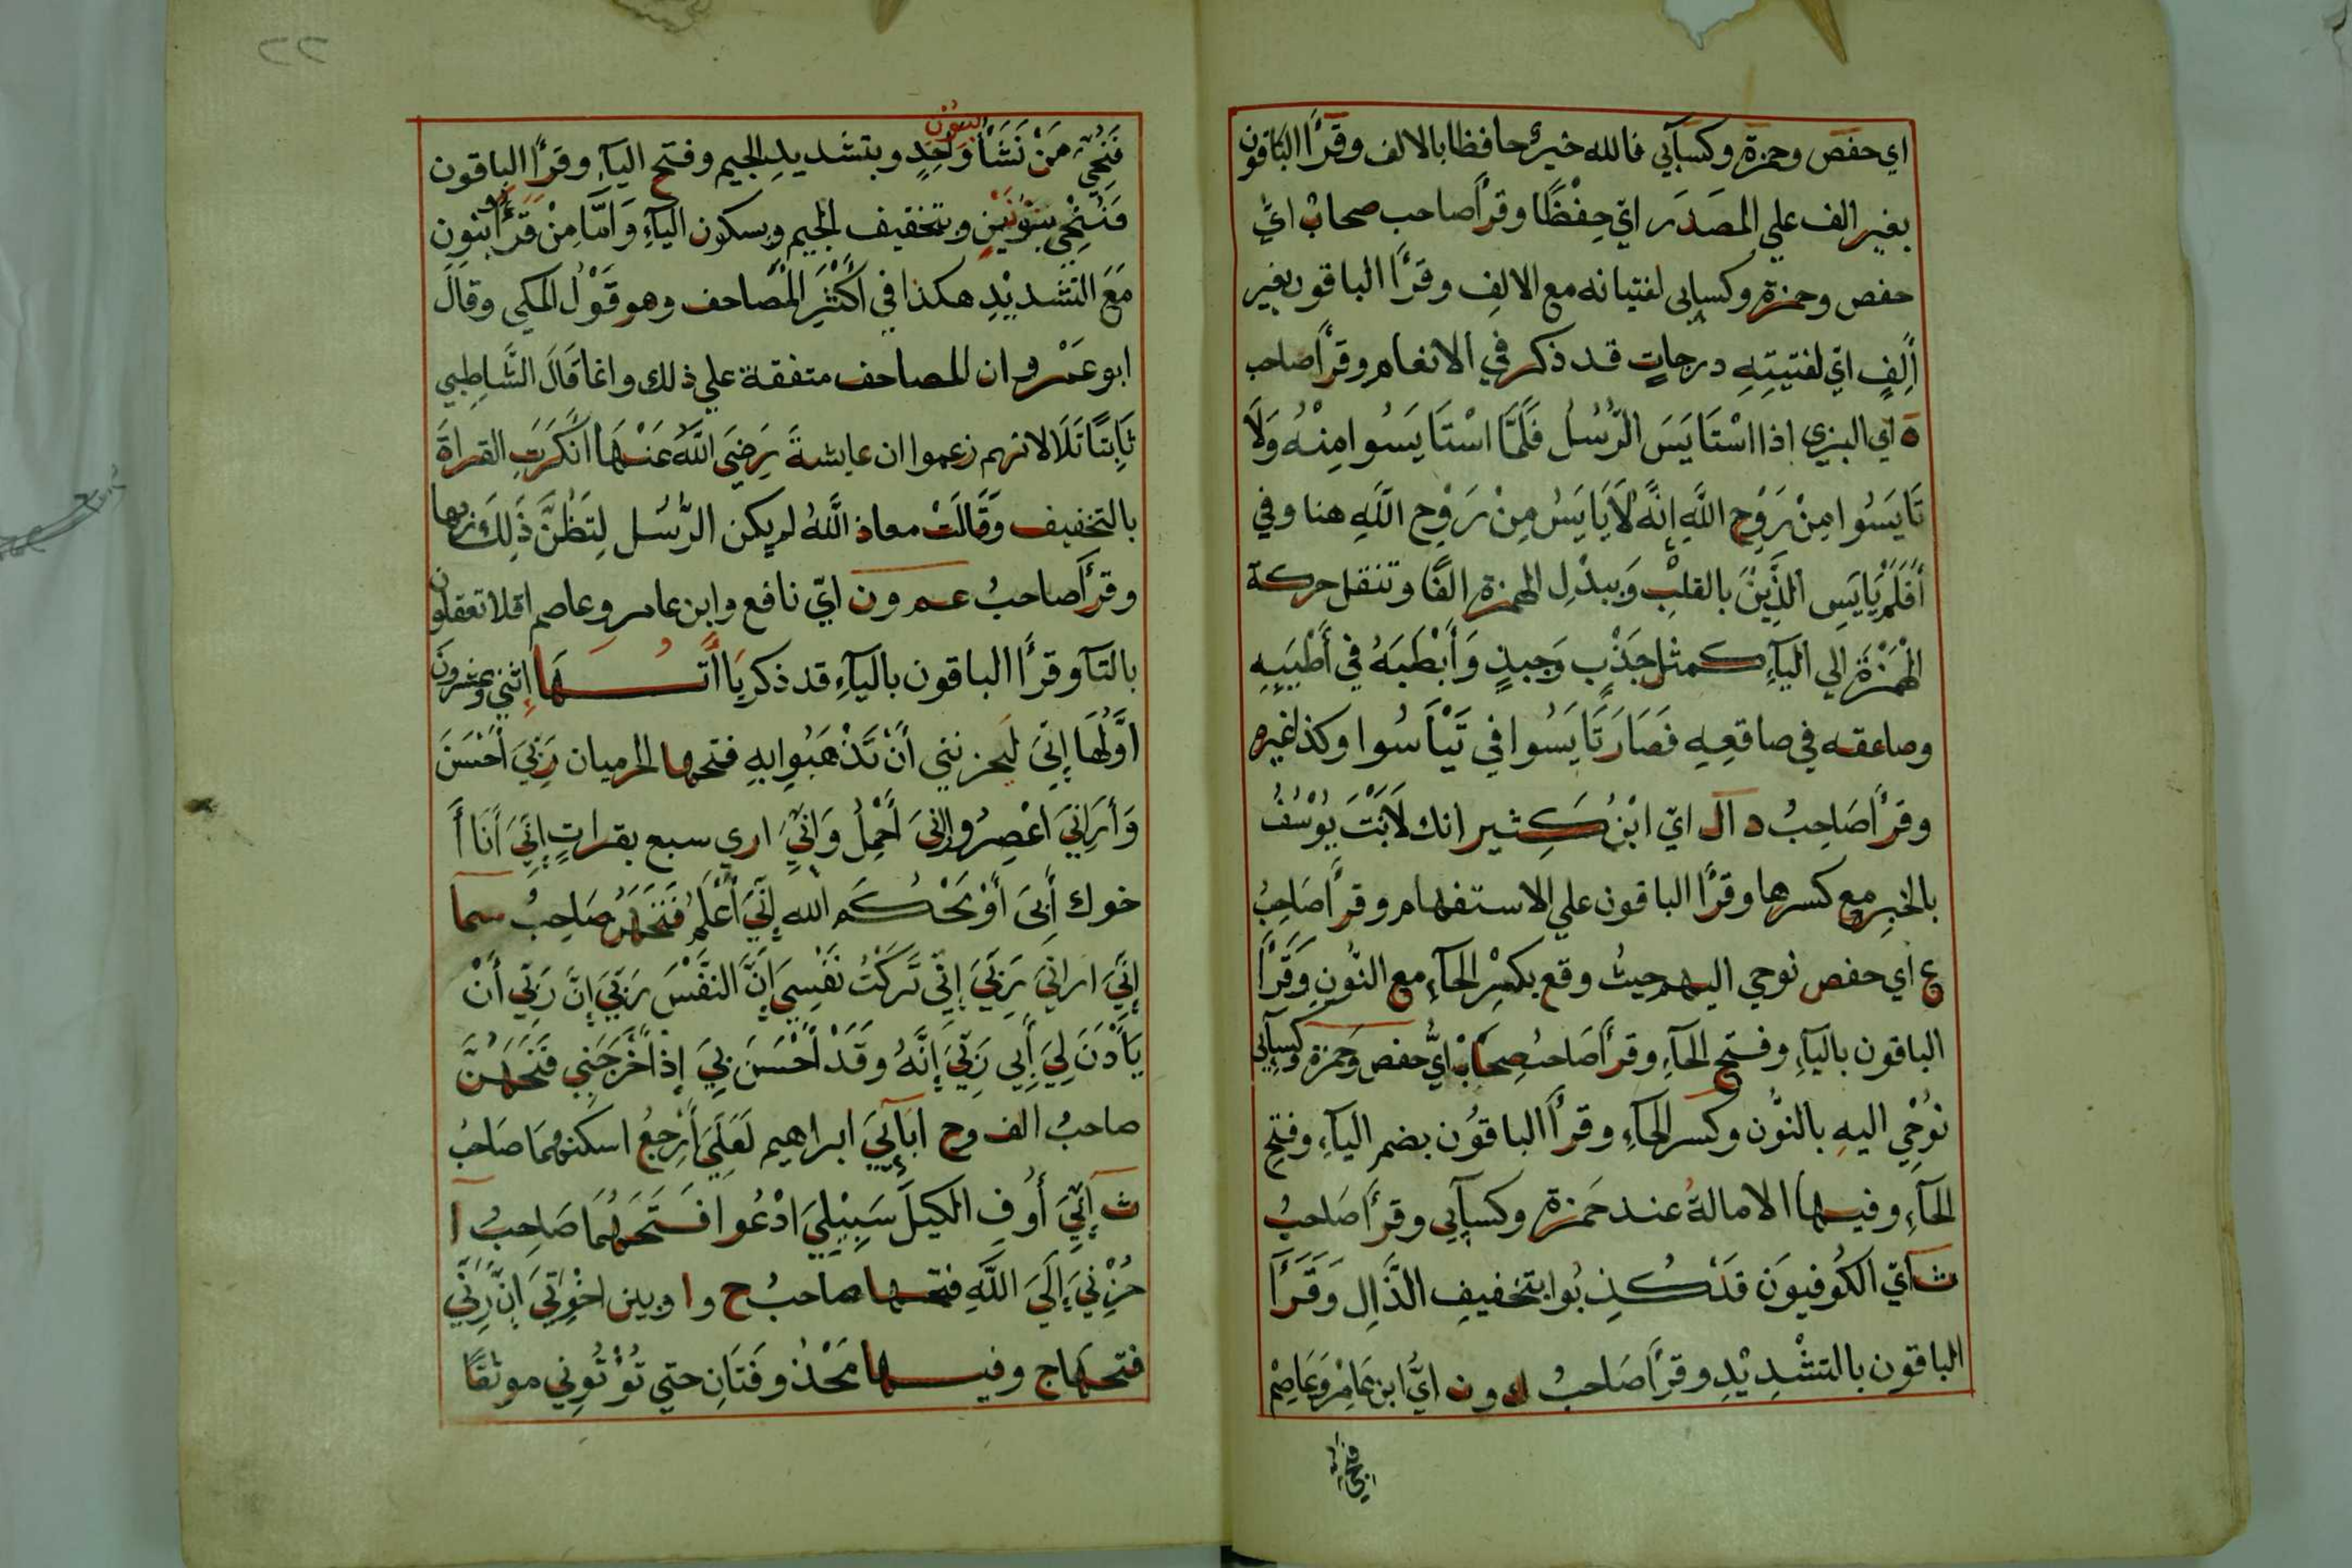 اي حفص وحمزة وكسآيي فالله خير حافظا بالالف وقرأ الباقون
بغير الف علي المصدر اي حفظا وقرأ صاحب صحاب اي
حفص وحمزة وكسايى لفتيانه مع الالف وقرأ الباقون بغير
ألف اي لفتيته درجات قد ذكر في الانعام وقرأ صاحب
ه اي البزي اذا استايس الرسل فلما استايسوا منه ولا
تايسوا من روح الله إنه لا يايس من روح الله هنا وفي
أفلم يايس الذين بالقلب ويبدل الهمزة الفا وتنقل حركة
الهمزة الي اليآء كمثل جذب وجبذ وأبطبه في أطيبه
وصاعقه في صاقعه فصار تايسوا في تيأسوا وكذا غيره
وقرأ صاحب د ال اي ابن كثير انك لانت يوسف
بالخبر مع كسرها وقرأ الباقون علي الاستفهام وقرأ صاحب
ع اي حفص نوحي اليهم حيث وقع بكسر الحآء مع النون وقرأ
الباقون باليآء وفتح الحآء وقرأ صاحب صحاب اي حفص وحمزة وكسآيي
نوحي اليه بالنون وكسر الحآء وقرأ الباقون بضم اليآء وفتح
الحآء وفيها الامالة عند حمزة وكسآيي وقرأ صاحب
ث اي الكوفيون قد كذبوا بتخفيف الذال وقرأ
الباقون بالتشديد وقرأ صاحب ك ون اي ابن عامر وعاصم
فنجي
٢٢
فنجي من نشأ بنون واحد وبتشديد الجيم وفتح اليآء وقرأ الباقون
فننجي بنونين وبتخفيف الجيم وبسكون اليآء وامّا من قرأ بنون
مع التشديد هكذا في أكثر المصاحف وهو قول المكي وقال
ابو عمرو ان المصاحف متفقة علي ذلك وانما قال الشاطبي
ثابتا تلا لانهم زعموا ان عايشة رضي الله عنها انكرت القراة
بالتخفيف وقالت معاذ الله لم يكن الرسل لتظن ذلك بربها
وقرأ صاحب عم ون اي نافع وابن عامر وعاصم افلا تعقلون
بالتآ وقرأ الباقون باليآء قد ذكر يااتها إثني وعشرون
اولها إني ليحزنني أن تذهبوا به فتحها الحرميان ربي أحسن
وأراني اعصر وإني أحمل وإني اري سبع بقرات إني أنا أ
خوك أبي أو يحكم الله إني أعلم فتحهن صاحب سما
إني اراني ربي إني تركت نفسي إن النفس ربي إن ربي أن
يأذن لي أبي ربي إنه وقد أحسن بي إذ أخرجني فتحهن
صاحب الف وح ابآئي ابراهيم لعلي أرجع اسكنهما صاحب
ث إني أوف الكيل سبيلي ادعوا فتحهما صاحب ا
حزني إلي الله فتحها صاحب ح وا وبين اخوتي ان ربي
فتحها ج وفيها محذوفتان حتي تؤتوني موثقا